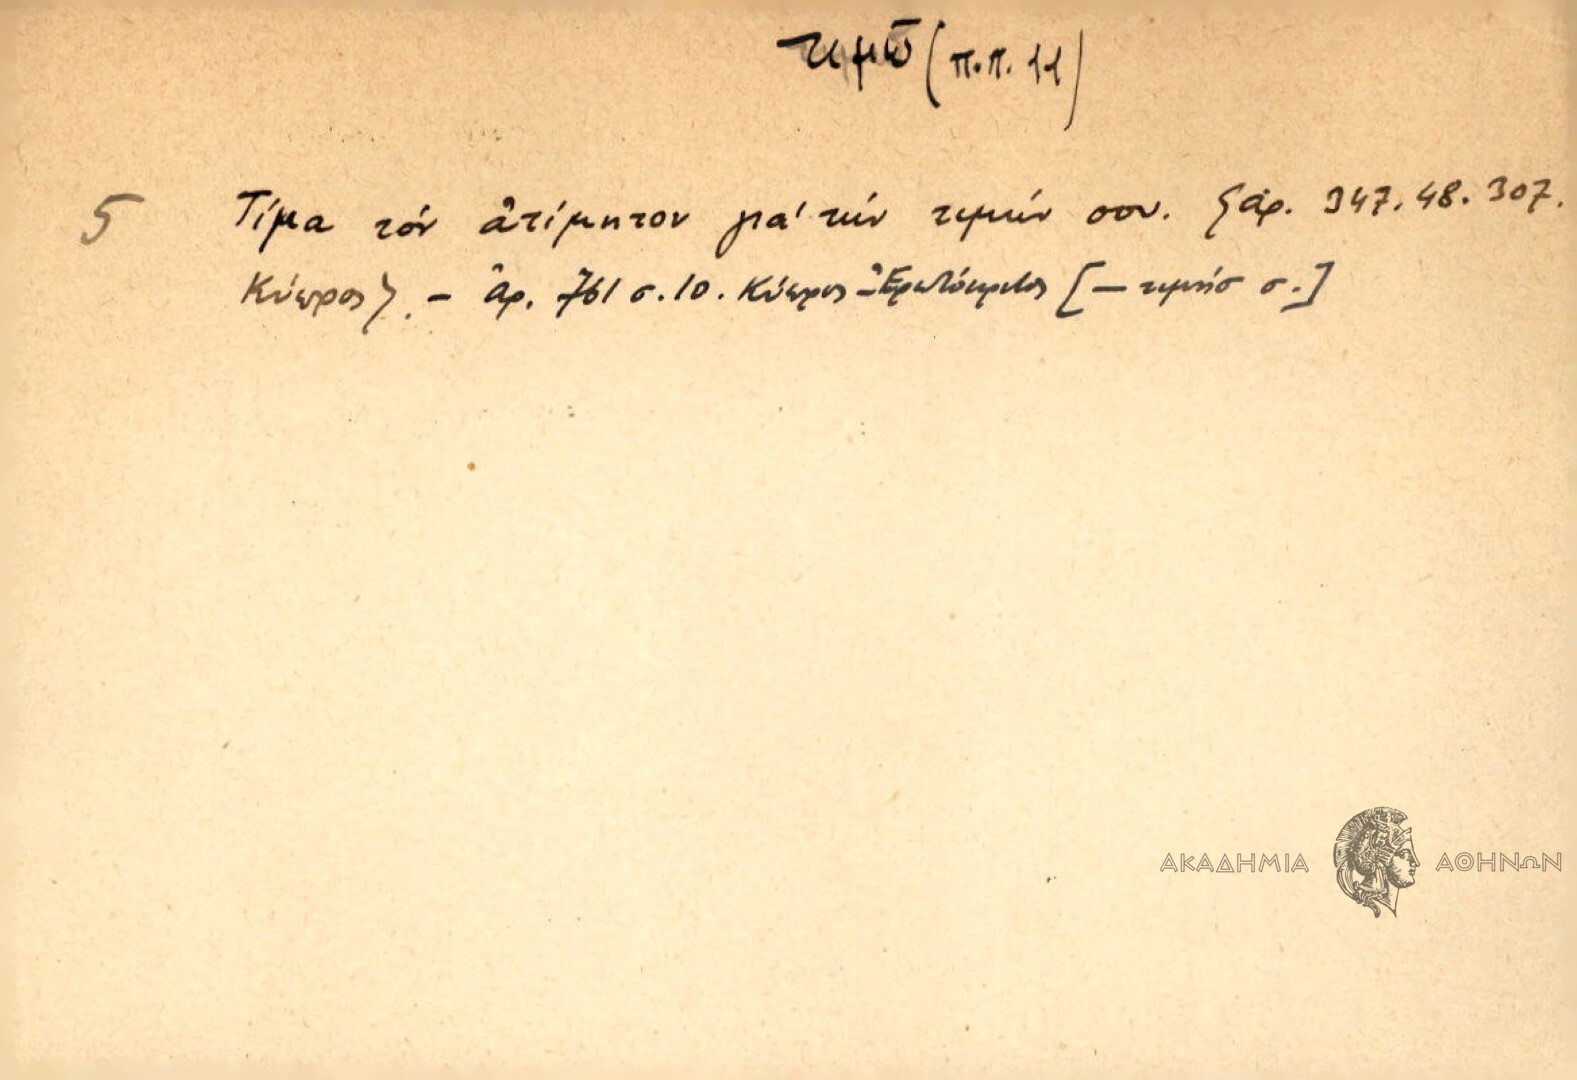 τιμῶ (π.π. 11)
5 Τίμα τόν ἀτίμητον γιά τήν τιμήν σου. {ἀρ. 347. 48. 307.
Κύπρος}. – ἀρ. 761 σ. 10. Κύπρος – Ἐρωτόκριτος [– τιμήσ σ.]
ΑΚΑΔΗΜΙΑ ΑΘΗΝΩΝ